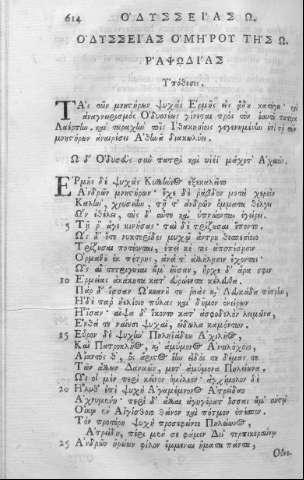 614 ΟΔΥΣΣΕΙΑΣ Ω.
ΟΔΥΣΣΕΙΑΣ ΟΜΗΡΟΥ ΤΗΣ Ω
ΡΑΨΩΔΙΑΣ
Υπόθεσις.
Τὰς τῶν μνηστήρων ψυχὰς Ερμῆς εἰς ᾅδα κατάγει·
ἀναγνωρισμὸς Οδυσσέως γίνεται πρὸς τὸν
Λαέρτην. καὶ ταραχὴν τοῖς Ιθακησίοις γεγενημένην ἐπὶ τῇ τῶν
μνηστήρων ἀναιρέσει Αθηνᾶ διαλύει.
Ω δ' Οδυσεὺς σὺν πατρὶ καὶ υἱέϊ μάχετ' Αχαιοῖς.
ΕΡμῆς δὲ ψυχὰς Κυλλήνιος ἐξεκαλεῖτο
Ανδρῶν μνηστήρων· ἔχε δὲ ῥάβδον μετὰ χερσὶ
Καλὴν, χρυσείην, τῇ τ' ἀνδρῶν ὄμματα θέλγει
Ων ἐθέλει, τοὺς δ' αὖτε καὶ ὑπνώοντας ἐγείρει.
5 Τῇ ῥ' ἄγε κινήσας· ταὶ δὲ τρίζουσαι ἕποντο.
Ως δ' ὅτε νυκτερίδες μυχῷ ἄντρου θεσπεσίοιο
Τρίζουσαι ποτέονται, ἐπεί κέ τις ἀποπέσῃσιν
Ορμαθοῦ ἐκ πέτρης, ἀνά τ' ἀλλήλῃσιν ἔχονται·
Ως αἱ τετριγυῖαι ἅμ' ἤϊσαν, ἦρχε δ' ἄρα σφιν
10 Ερμείας ἀκάκητα κατ' εὐρώεντα κέλευθα.
Πὰρ δ' ἴσαν Ωκεανοῦ τε ῥοὰς καὶ Λευκάδα πέτρην,
Ηδὲ παρ' ἠελίοιο πύλας καὶ δῆμον ὀνείρων
Ηϊσαν· αἶψα δ' ἵκοντο κατ' ἀσφοδελὸν λειμῶνα,
Ενθά τε ναίουσι ψυχαὶ, εἴδωλα καμόντων.
15 Εὗρον δὲ ψυχὴν Πηληϊάδεω Αχιλῆος,
Καὶ Πατροκλῆος, καὶ ἀμύμονος Αντιλόχοιο,
Αἴαντός θ', ὃς ἄριστος ἔην εἶδός τε δέμας τε
Τῶν ἄλλων Δαναῶν, μετ' ἀμύμονα Πηλείωνα.
Ως οἱ μὲν περὶ κεῖνον ὁμίλεον· ἀγχίμολον δὲ
20 Ηλυθ' ἐπὶ ψυχὴ Αγαμέμνονος Ατρείδαο
Αχνυμένη· περὶ δ' ἄλλαι ἀγηγέραθ' ὅσσαι ἅμ' αὐτῷ
Οἴκῳ ἐν Αἰγίσθοιο θάνον καὶ πότμον ἐπέσπον.
Τὸν προτέρη ψυχὴ προσεφώνεε Πηλείωνος,
Ατρείδη, περὶ μέν σε φάμεν Διὶ τερπικεραύνῳ
25 Ανδρῶν ἡρώων φίλον ἔμμεναι ἤματα πάντα,